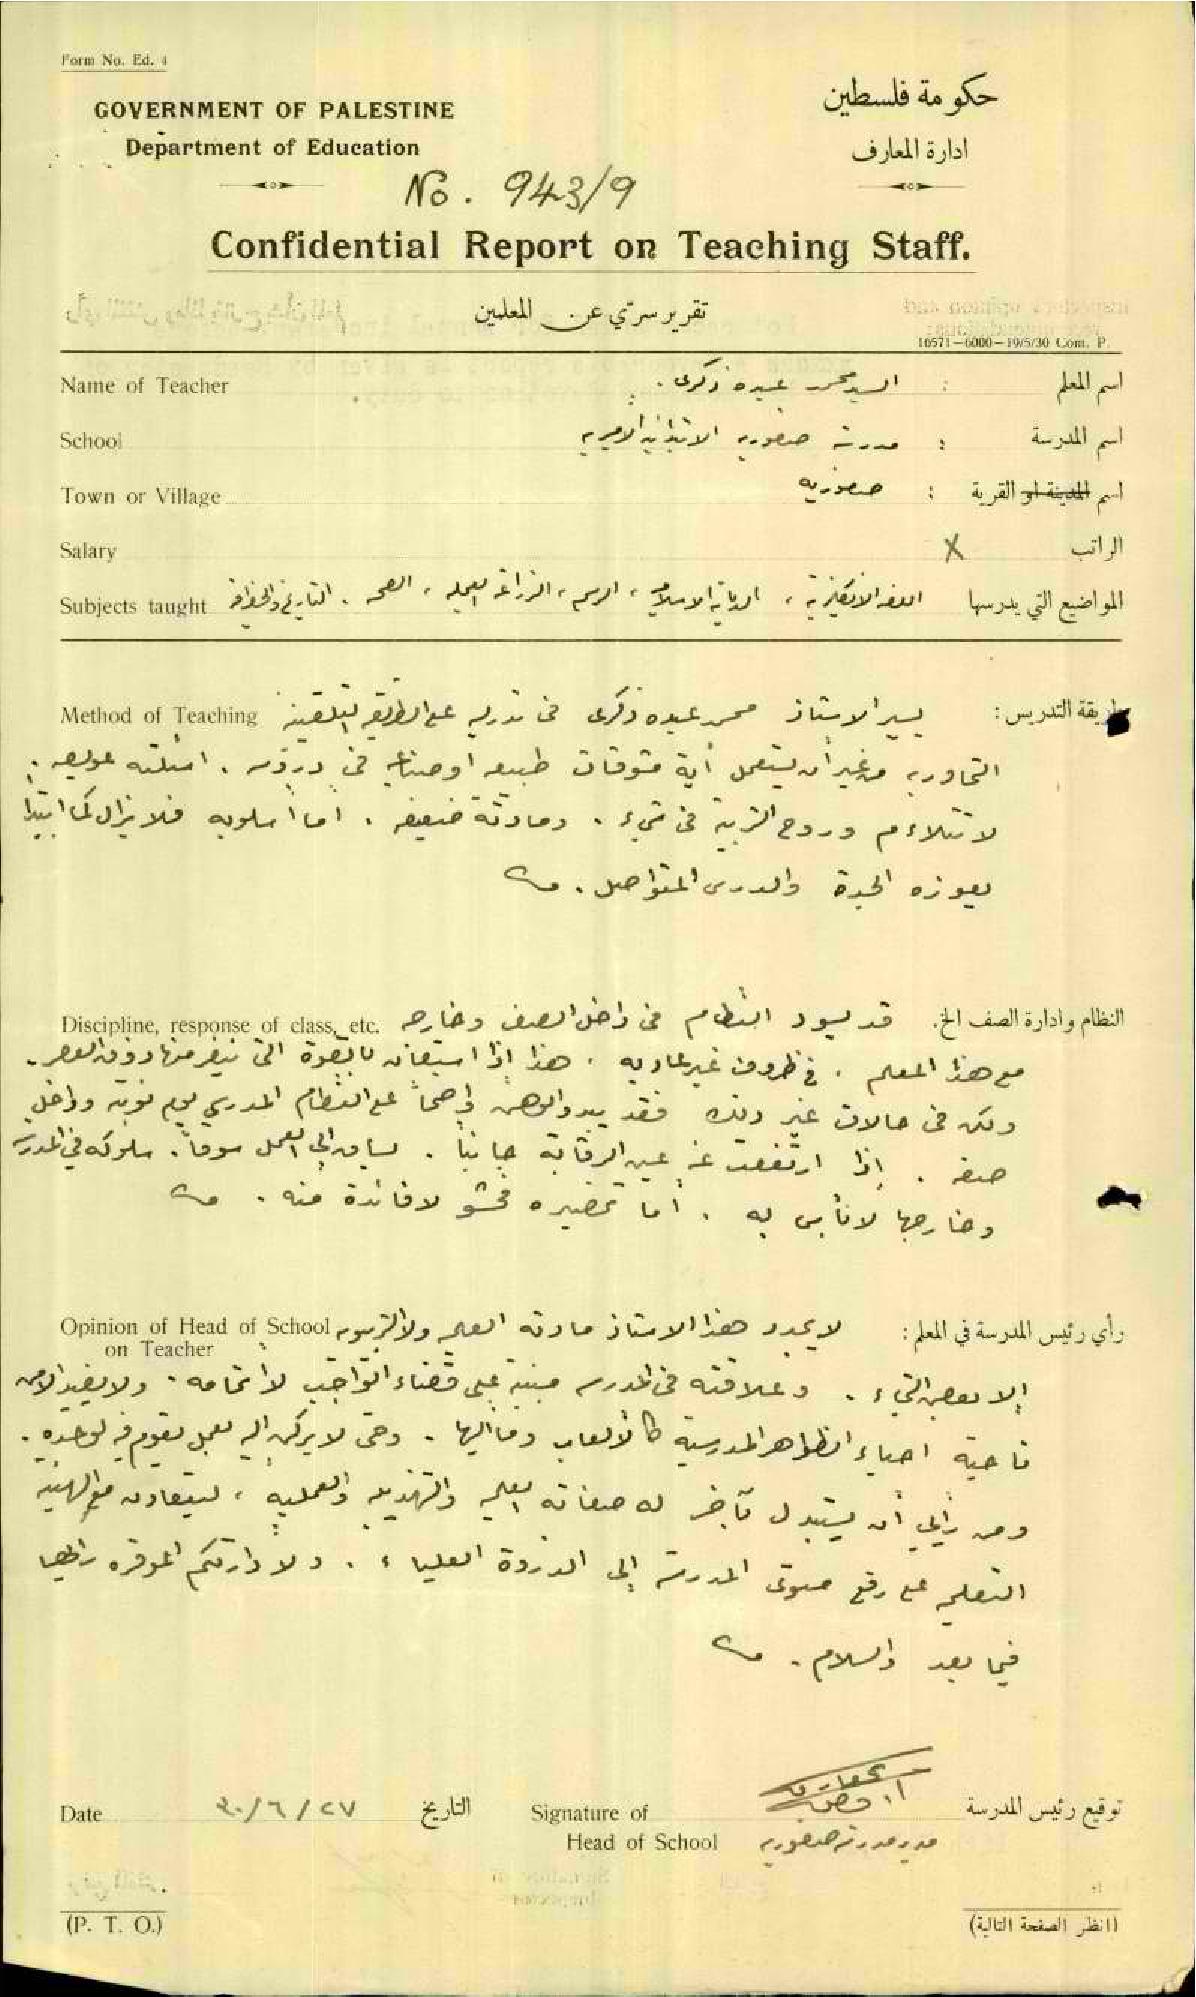 Form No. Ed. 4
GOVERNMENT OF PALESTINE
Department of Education
حكومة فلسطين
ادارة المعارف
No. 943/9
Confidential Report on Teaching Staff.
تقرير سري عن المعلمين
16571—6000—19/5/30 Com. P.
Name of Teacher السيد محمد عبده ذكرى . : اسم المعلم
School مدرسة صفوريه الابتدائية الاميريه : اسم المدرسة
Town or Village صفوريه : اسم المدينة او القرية
Salary X الراتب
Subjects taught اللغه الانكليزية ، الديانة الاسلاميه ، الرسم ، الزراعة العمليه ، الصحه . التاريخ والجغرافية المواضيع التي يدرسها
Method of Teaching طريقة التدريس : يسير الاستاذ محمد عبده ذكرى في تدريسه على الطريقه التلقينية
التحاوريه من غير أن يستعمل أية مشوقات طبيعيه او صناعيه في دروسه . اسئلته عويصه .
لا تتلاءم وروح التربية في شيء . ومادته ضعيفه . اما أسلوبه فلا يزال كما ابتدأ
يعوزه الجدة والدرس المتواصل .
Discipline, response of class, etc. النظام وادارة الصف الخ. قد يسود النظام في داخل الصف وخارجه
مع هذا المعلم . في ظروف غير عاديه . هذا إذا استعان بالقسوة التي ينفر منها ذوق العصر .
ولكن في حالات غير ذلك فقد يبدو الوهن واضحاً على النظام المدرسي يوم نوبته وداخل
صفه . إذا ارتفعت عنه عين الرقابة جانباً . يساق إلى العمل سوقاً . سلوكه في المدرسه
وخارجها لا بأس به . أما تحضيره فحشو لا فائدة منه .
Opinion of Head of School on Teacher رأي رئيس المدرسة في المعلم : لا يجدد هذا الاستاذ مادته العلميه ولا التربويه
إلا بعض الشيء . وعلاقته في المدرسه مبنية على قضاء الواجب لا اتمامه . ولا يفيد الا من
ناحية احياء المظاهر المدرسية كالألعاب وما اليها . وحتى لا يركن اليه بعمل يقوم فيه لوحده .
ومن رأيي أن يستبدل بآخر له صفاته العلميه والتهذيبيه والعمليه ، ليتعاون مع الهيئة
التعليميه على رفع مستوى المدرسة إلى الذروة العلياء . ولادارتكم الموقره رأيها
فيما بعد والسلام .
Date ٢٧ / ٦ / ٣٠ التاريخ
Signature of Head of School توقيع رئيس المدرسة
مدير مدرسة صفوريه
(P. T. O.)
(انظر الصفحة التالية)